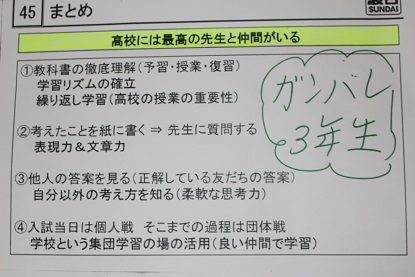 45 まとめ
SUNDAI
高校には最高の先生と仲間がいる
①教科書の徹底理解（予習・授業・復習）
学習リズムの確立
繰り返し学習（高校の授業の重要性）
②考えたことを紙に書く ⇒ 先生に質問する
表現力＆文章力
③他人の答案を見る（正解している友だちの答案）
自分以外の考え方を知る（柔軟な思考力）
④入試当日は個人戦 そこまでの過程は団体戦
学校という集団学習の場の活用（良い仲間で学習）
ガンバレ
3年生